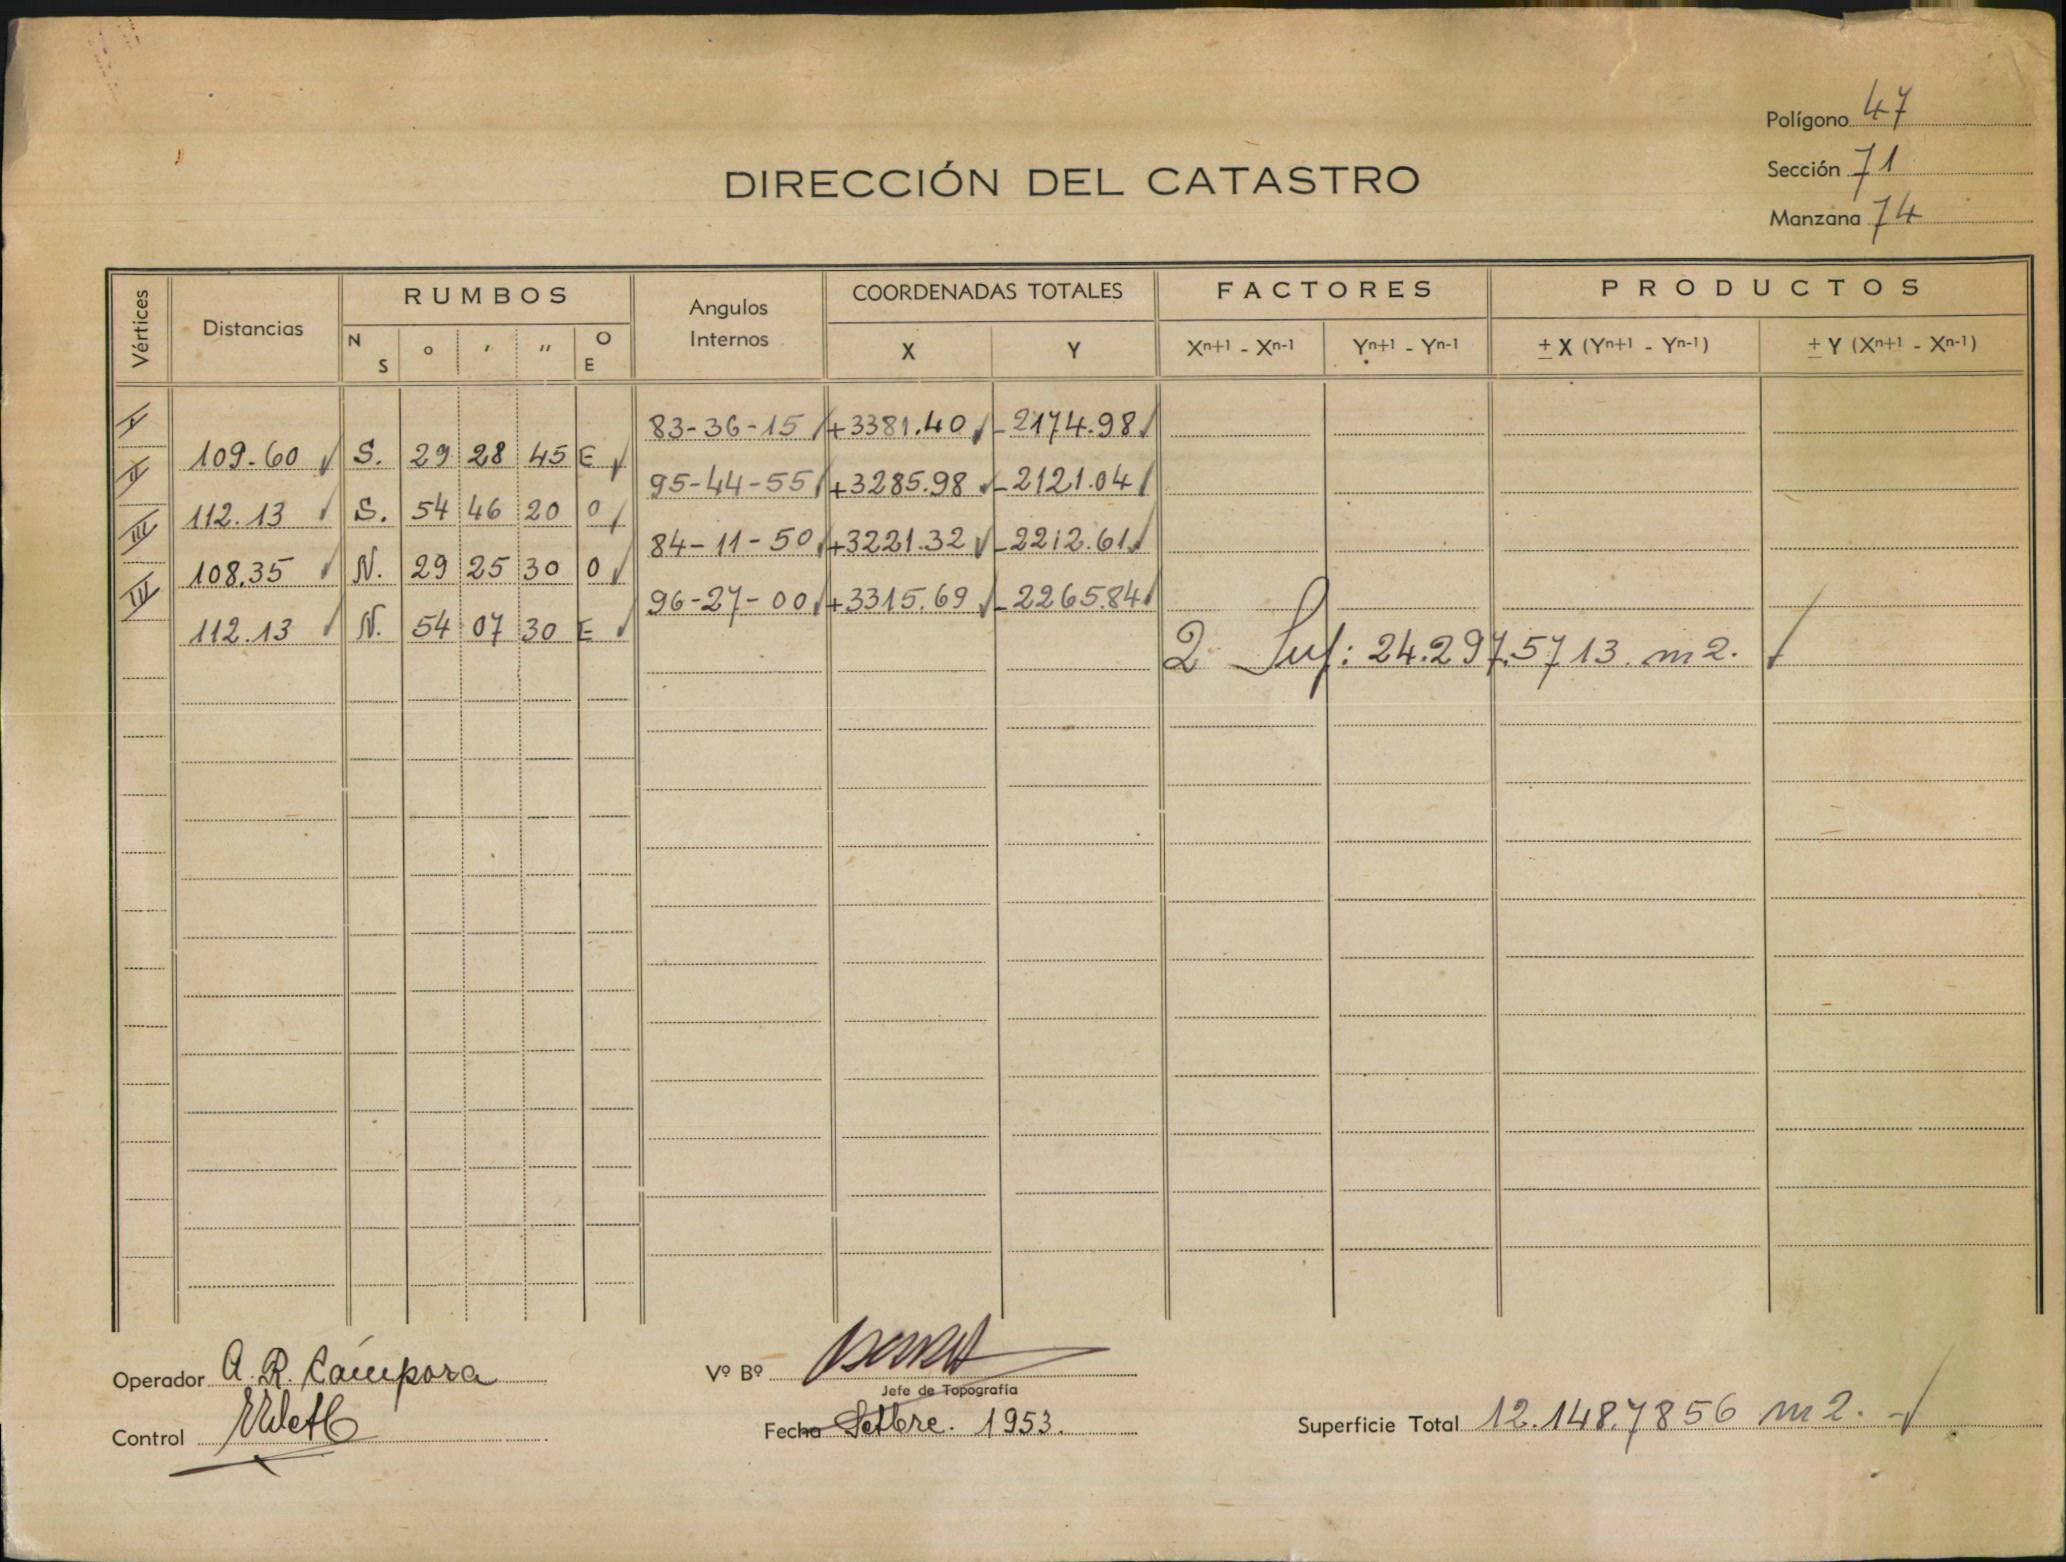 Polígono 47
Sección 71
Manzana 74
DIRECCIÓN DEL CATASTRO
Vértices Distancias RUMBOS Angulos Internos COORDENADAS TOTALES FACTORES PRODUCTOS
N S o ' " O E X Y Xn+1 - Xn-1 Yn+1 - Yn-1 ± X (Yn+1 - Yn-1) ± Y (Xn+1 - Xn-1)
I 83-36-15 +3381.40 -2174.98
109.60 S. 29 28 45 E
II 95-44-55 +3285.98 -2121.04
112.13 S. 54 46 20 O
III 84-11-50 +3221.32 -2212.61
108.35 N. 29 25 30 O
IV 96-27-00 +3315.69 -2265.84
112.13 N. 54 07 30 E
2 Sup: 24.297.5713 m2.
Operador A. R. Cámpora
Vº Bº
Jefe de Topografía
Control
Fecha Setbre. 1953.
Superficie Total 12.148.7856 m2.